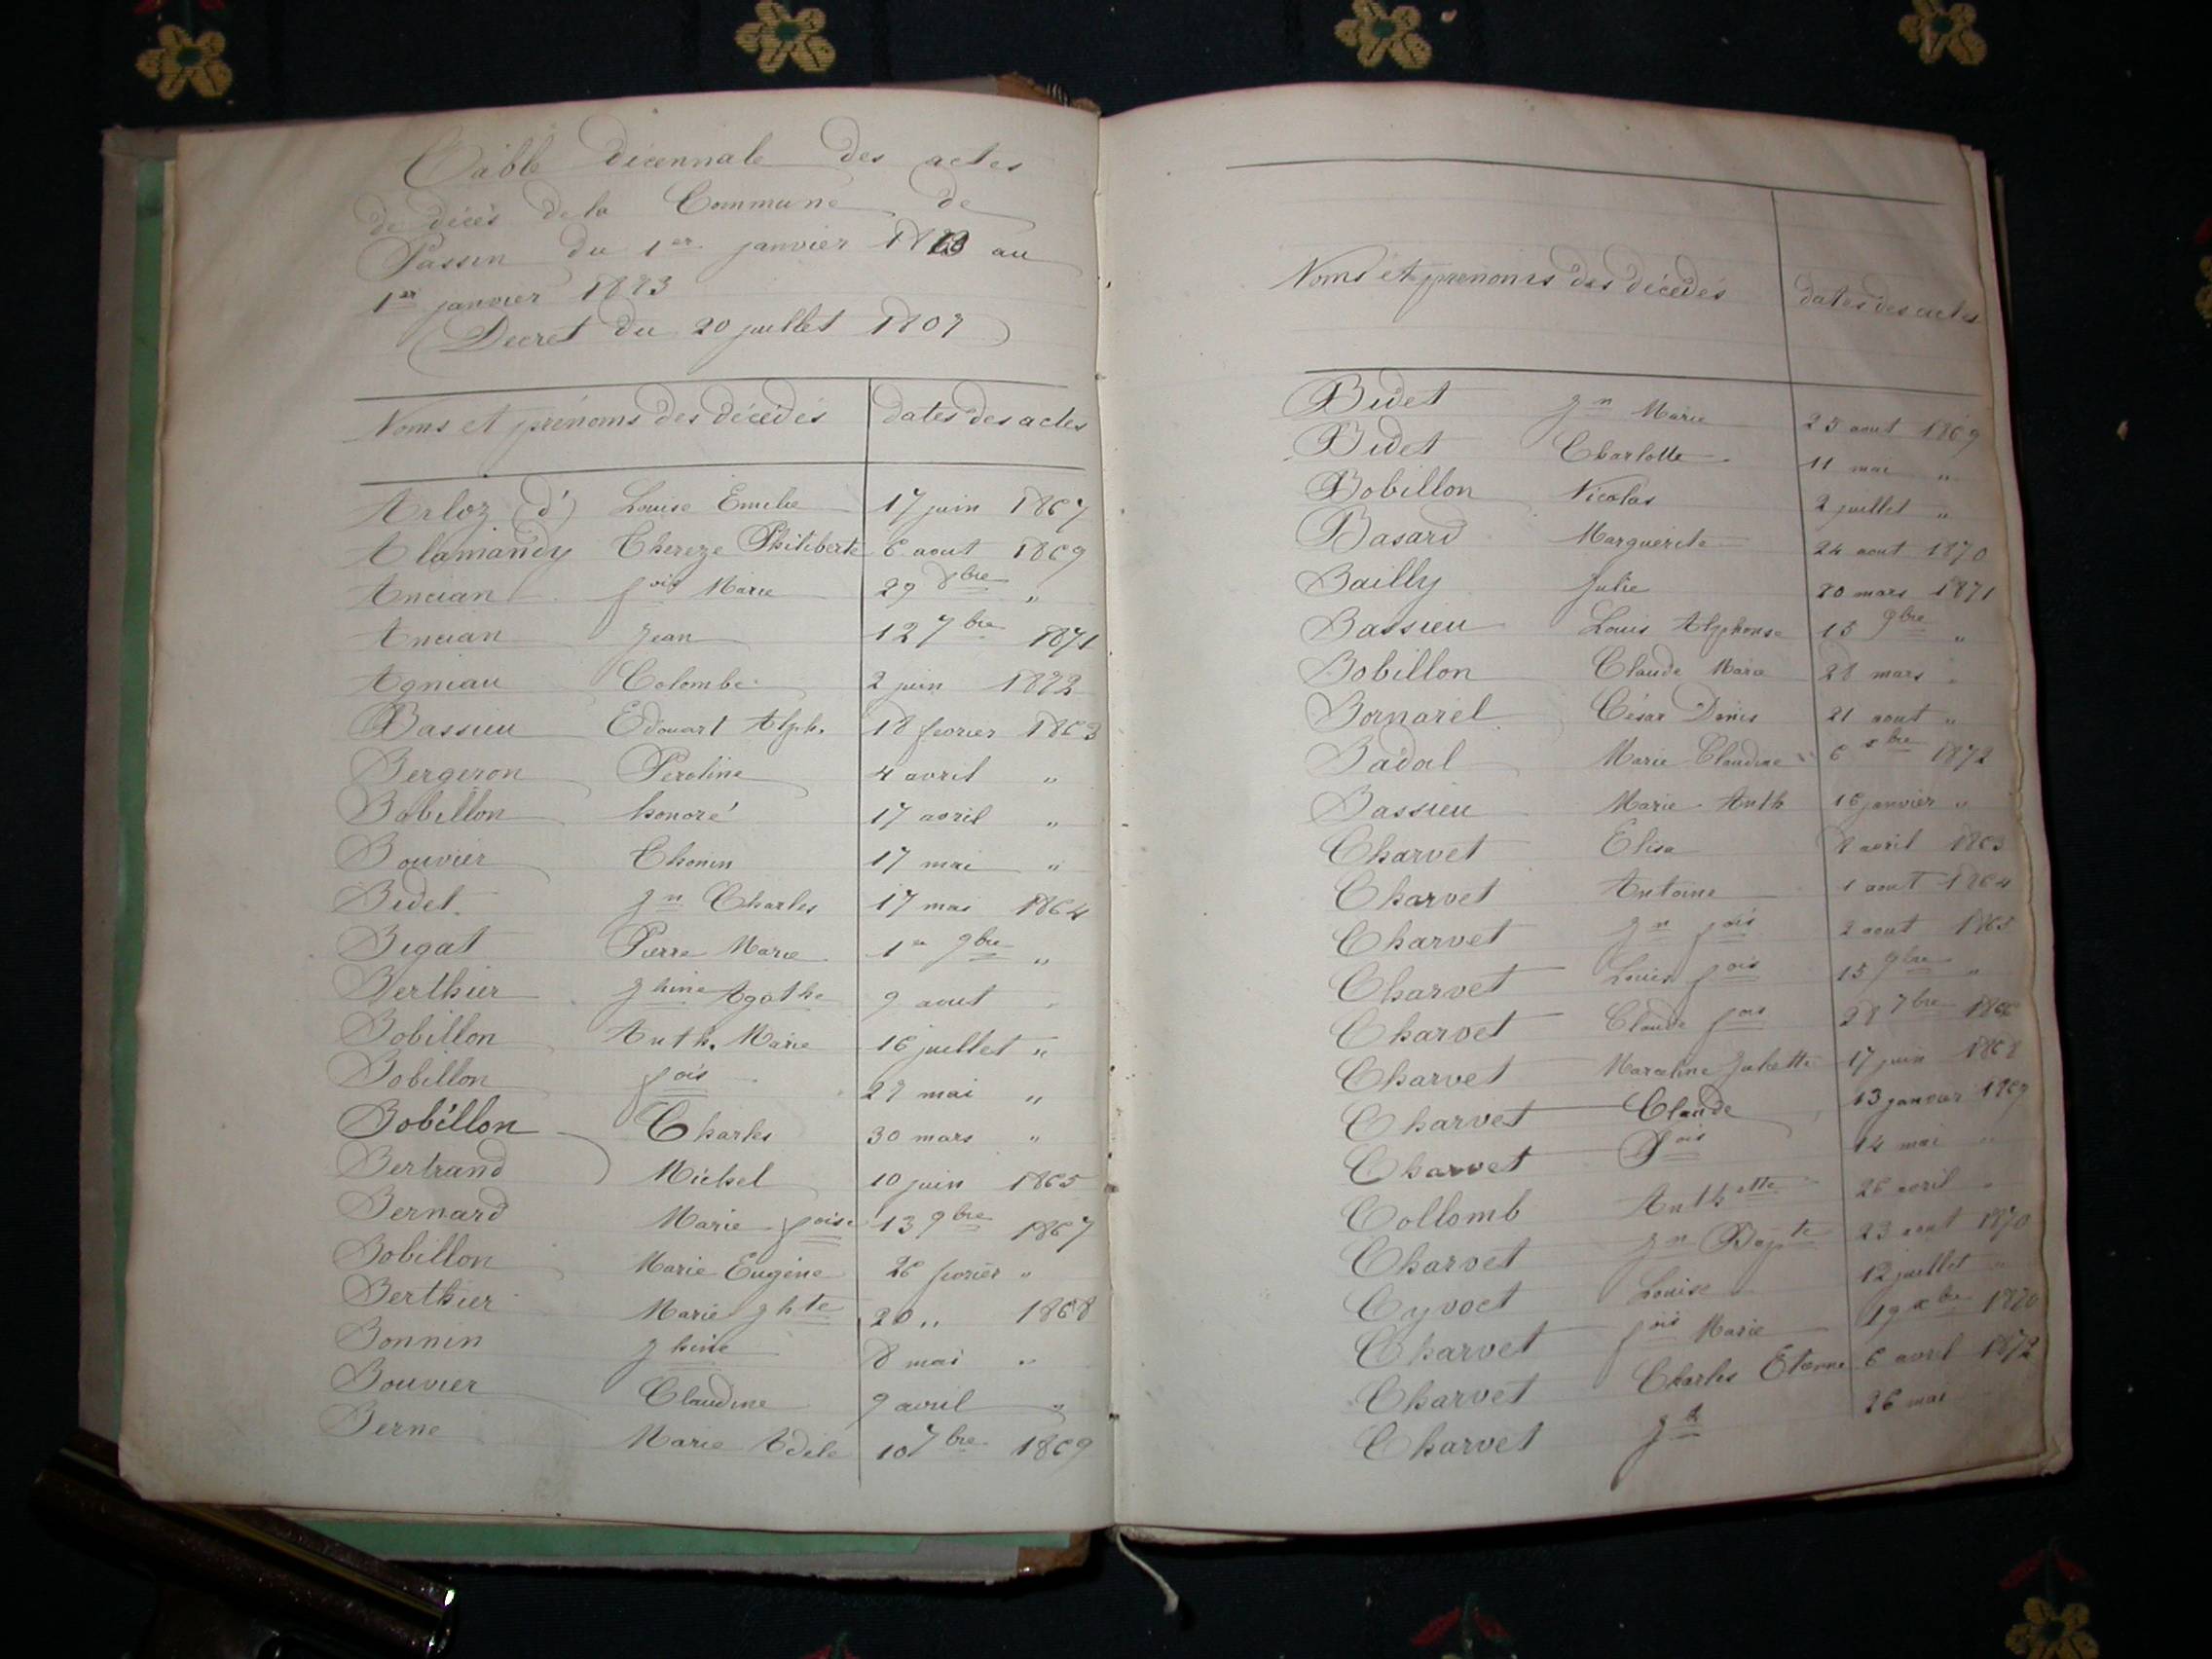 Table décennale des actes
de décès de la Commune de
Passin du 1er janvier 1863 au
1er janvier 1873
Decret du 20 juillet 1807
Noms et prénoms des décédés dates des actes
Arloz (d') Louise Emilie 17 juin 1867
Alamandy Thereze Philiberte 6 aout 1869
Ancian fois Marie 29 8bre "
Ancian Jean 12 7bre 1871
Agniau Colombe 2 juin 1872
Bassieu Edouart Alph. 18 fevrier 1863
Bergeron Peroline 4 avril "
Bobillon honoré 17 avril "
Bouvier Thonin 17 mai "
Bidet jn Charles 17 mai 1864
Bigat Pierre Marie 1er 9bre "
Berthier jhine Agathe 9 aout "
Bobillon Anth. Marie 16 juillet "
Bobillon fois 27 mai "
Bobillon Charles 30 mars "
Bertrand Michel 10 juin 1865
Bernard Marie foise 13 9bre 1867
Bobillon Marie Eugène 26 fevrier "
Berthier Marie jhte 20 " 1868
Bonnin jhine 8 mai "
Bouvier Claudine 9 avril "
Berne Marie Adèle 10 7bre 1869
Noms et prenoms des décédés dates des actes
Bidet jn Marie 25 aout 1869
Bidet Charlotte 11 mai "
Bobillon Nicolas 2 juillet "
Basard Marguerite 24 aout 1870
Bailly Julie 20 mars 1871
Bassieu Louis Alphonse 15 9bre "
Bobillon Claude Marie 28 mars "
Bornarel César Denis 21 aout "
Badal Marie Claudine 6 xbre 1872
Bassieu Marie Anth 16 janvier "
Charvet Elisa avril 1863
Charvet Antoine 1 aout 1864
Charvet jn fois 2 aout 1865
Charvet Louis fois 15 9bre "
Charvet Claude fois 28 7bre 1866
Charvet Marceline Juliette 17 juin 1868
Charvet Claude 13 janvier 1869
Charvet Fois 14 mai "
Collomb Anthette 26 avril "
Charvet jn Bapte 23 aout 1870
Cyvoct Louise 12 juillet "
Charvet fois Marie 19 xbre 1870
Charvet Charles Etienne 6 avril 1872
Charvet jh 26 mai